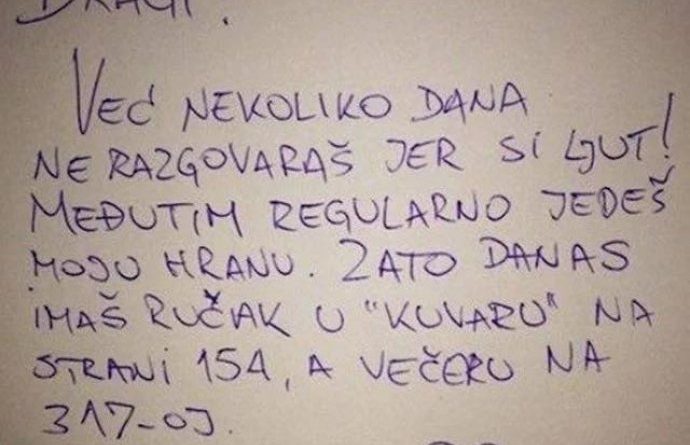 DRAGI.
VEĆ NEKOLIKO DANA
NE RAZGOVARAŠ JER SI LJUT!
MEĐUTIM REGULARNO JEDEŠ
MOJU HRANU. ZATO DANAS
IMAŠ RUČAK U "KUVARU" NA
STRANI 154, A VEČERU NA
317-OJ.